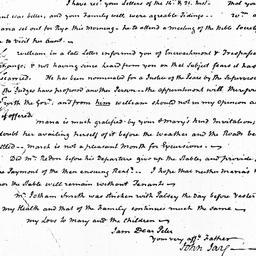 I have rec.d your Letters of the 16 & 21. inst. That you
was better, and your Family well, were agreable Tidings.
set out for Rye this morning, to attend a meeting of the Bible Society
to visit her Aunt.
William in a late Letter informed you of Encroachments & Trespasses
and not having since heard from you on that Subject fears it has
miscarried. He has been nominated for a Judge of the
the Judges have proposed another Person the appointment will therefore
with the Gov.r, and from him William should not in my opinion
if offered
Maria is much gratified by your & Mary's kind Invitation,
doubt her availing herself of it before the Weather and the Roads be
settled March is not a pleasant Month for Excursions
Did M.r Redon before his Departure give up the Stable, and provide
Payment of the then ensuing Rent I hope that neither
nor the Stable will remain without Tenants
M.r Pelham Smith was stricken with Palsey the day before Yester
my Health and that of the Family continues much the same
my Love to Mary and the Children
I am Dear Peter
Your very aff.te Father
John Jay